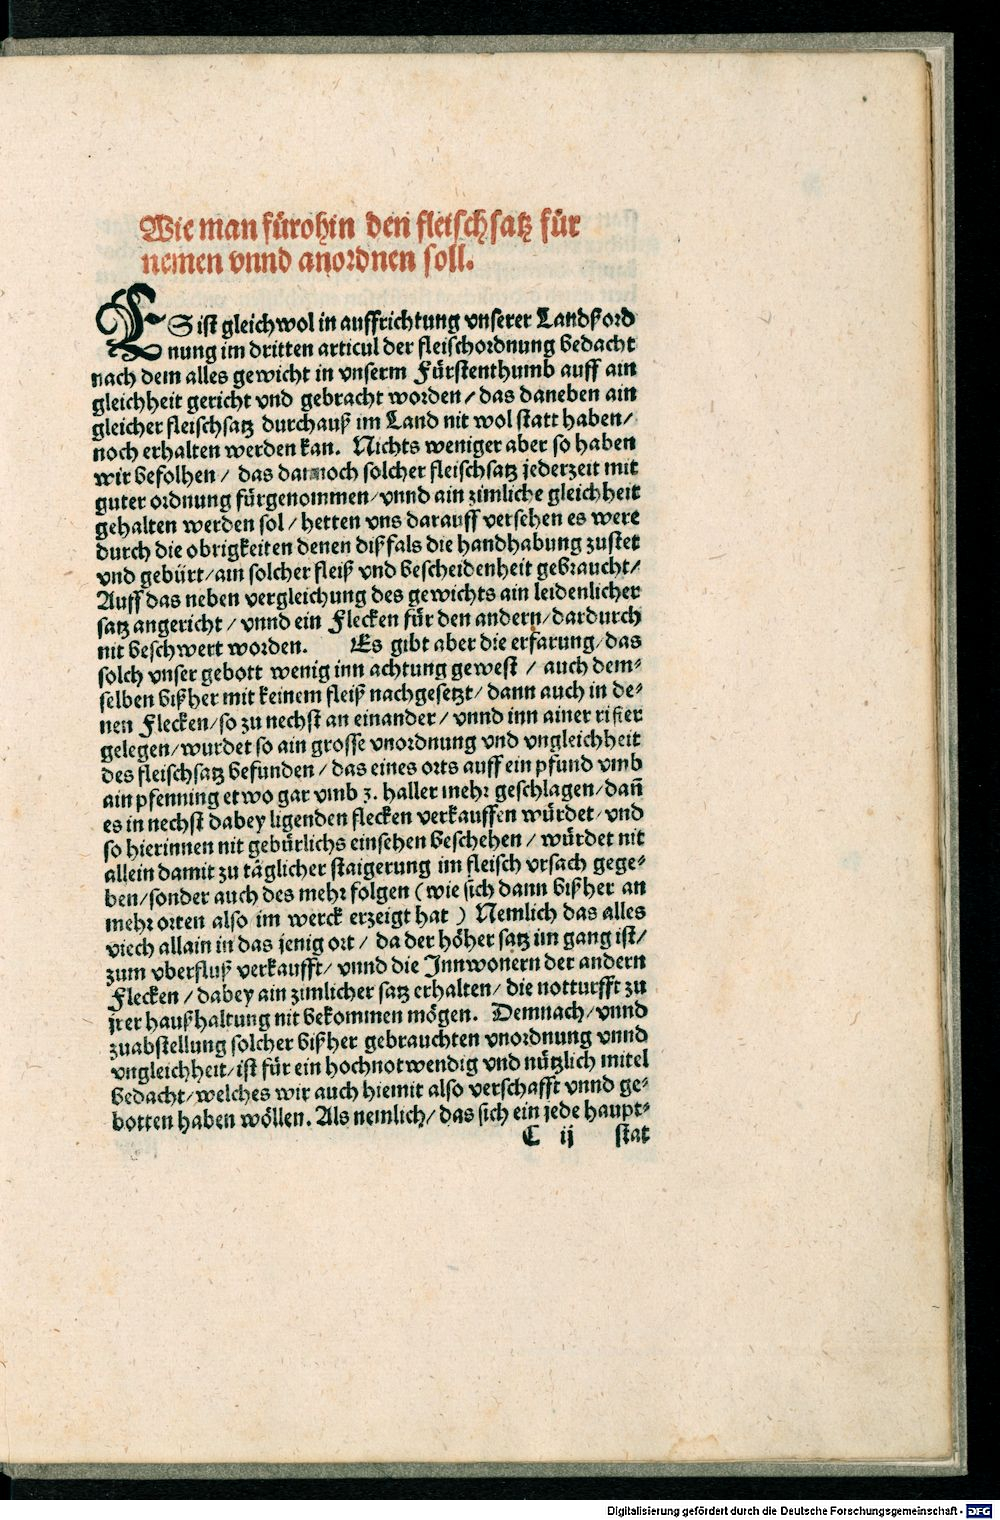 Wie man fürohin den fleischsatz für
nemen vnnd anordnen soll.
ES ist gleichwol in auffrichtung vnserer Landßord
nung im dritten articul der fleischordnung bedacht
nach dem alles gewicht in vnserm Fürstenthumb auff ain
gleichheit gericht vnd gebracht worden/ das daneben ain
gleicher fleischsatz durchauß im Land nit wol statt haben/
noch erhalten werden kan. Nichts weniger aber so haben
wir befolhen/ das dannoch solcher fleischsatz jederzeit mit
guter ordnung fürgenommen/ vnnd ain zimliche gleichheit
gehalten werden sol/ hetten vns darauff versehen es were
durch die obrigkeiten denen dißfals die handhabung zustet
vnd gebürt/ ain solcher fleiß vnd bescheidenheit gebraucht/
Auff das neben vergleichung des gewichts ain leidenlicher
satz angericht/ vnnd ein Flecken für den andern/ dardurch
nit beschwert worden. Es gibt aber die erfarung/ das
solch vnser gebott wenig inn achtung gewest/ auch dem⸗
selben bißher mit keinem fleiß nachgesetzt/ dann auch in de⸗
nen Flecken/ so zu nechst an einander/ vnnd inn ainer rifier
gelegen/ wurdet so ain grosse vnordnung vnd vngleichheit
des fleischsatz befunden/ das eines orts auff ein pfund vmb
ain pfenning etwo gar vmb 3. haller mehr geschlagen/ dañ
es in nechst dabey ligenden flecken verkauffen würdet/ vnd
so hierinnen nit gebürlichs einsehen beschehen/ würdet nit
allein damit zu täglicher staigerung im fleisch vrsach gege⸗
ben/ sonder auch des mehr folgen (wie sich dann bißher an
mehr orten also im werck erzeigt hat) Nemlich das alles
viech allain in das jenig ort/ da der höher satz im gang ist/
zum vberfluß verkaufft/ vnnd die Innwonern der andern
Flecken/ dabey ain zimlicher satz erhalten/ die notturfft zu
jrer haußhaltung nit bekommen mögen. Demnach/ vnnd
zuabstellung solcher bißher gebrauchten vnordnung vnnd
vngleichheit/ ist für ein hochnotwendig vnd nützlich mitel
bedacht/ welches wir auch hiemit also verschafft vnnd ge⸗
botten haben wöllen. Als nemlich/ das sich ein jede haupt⸗
C ij stat
Digitalisierung gefördert durch die Deutsche Forschungsgemeinschaft - DFG